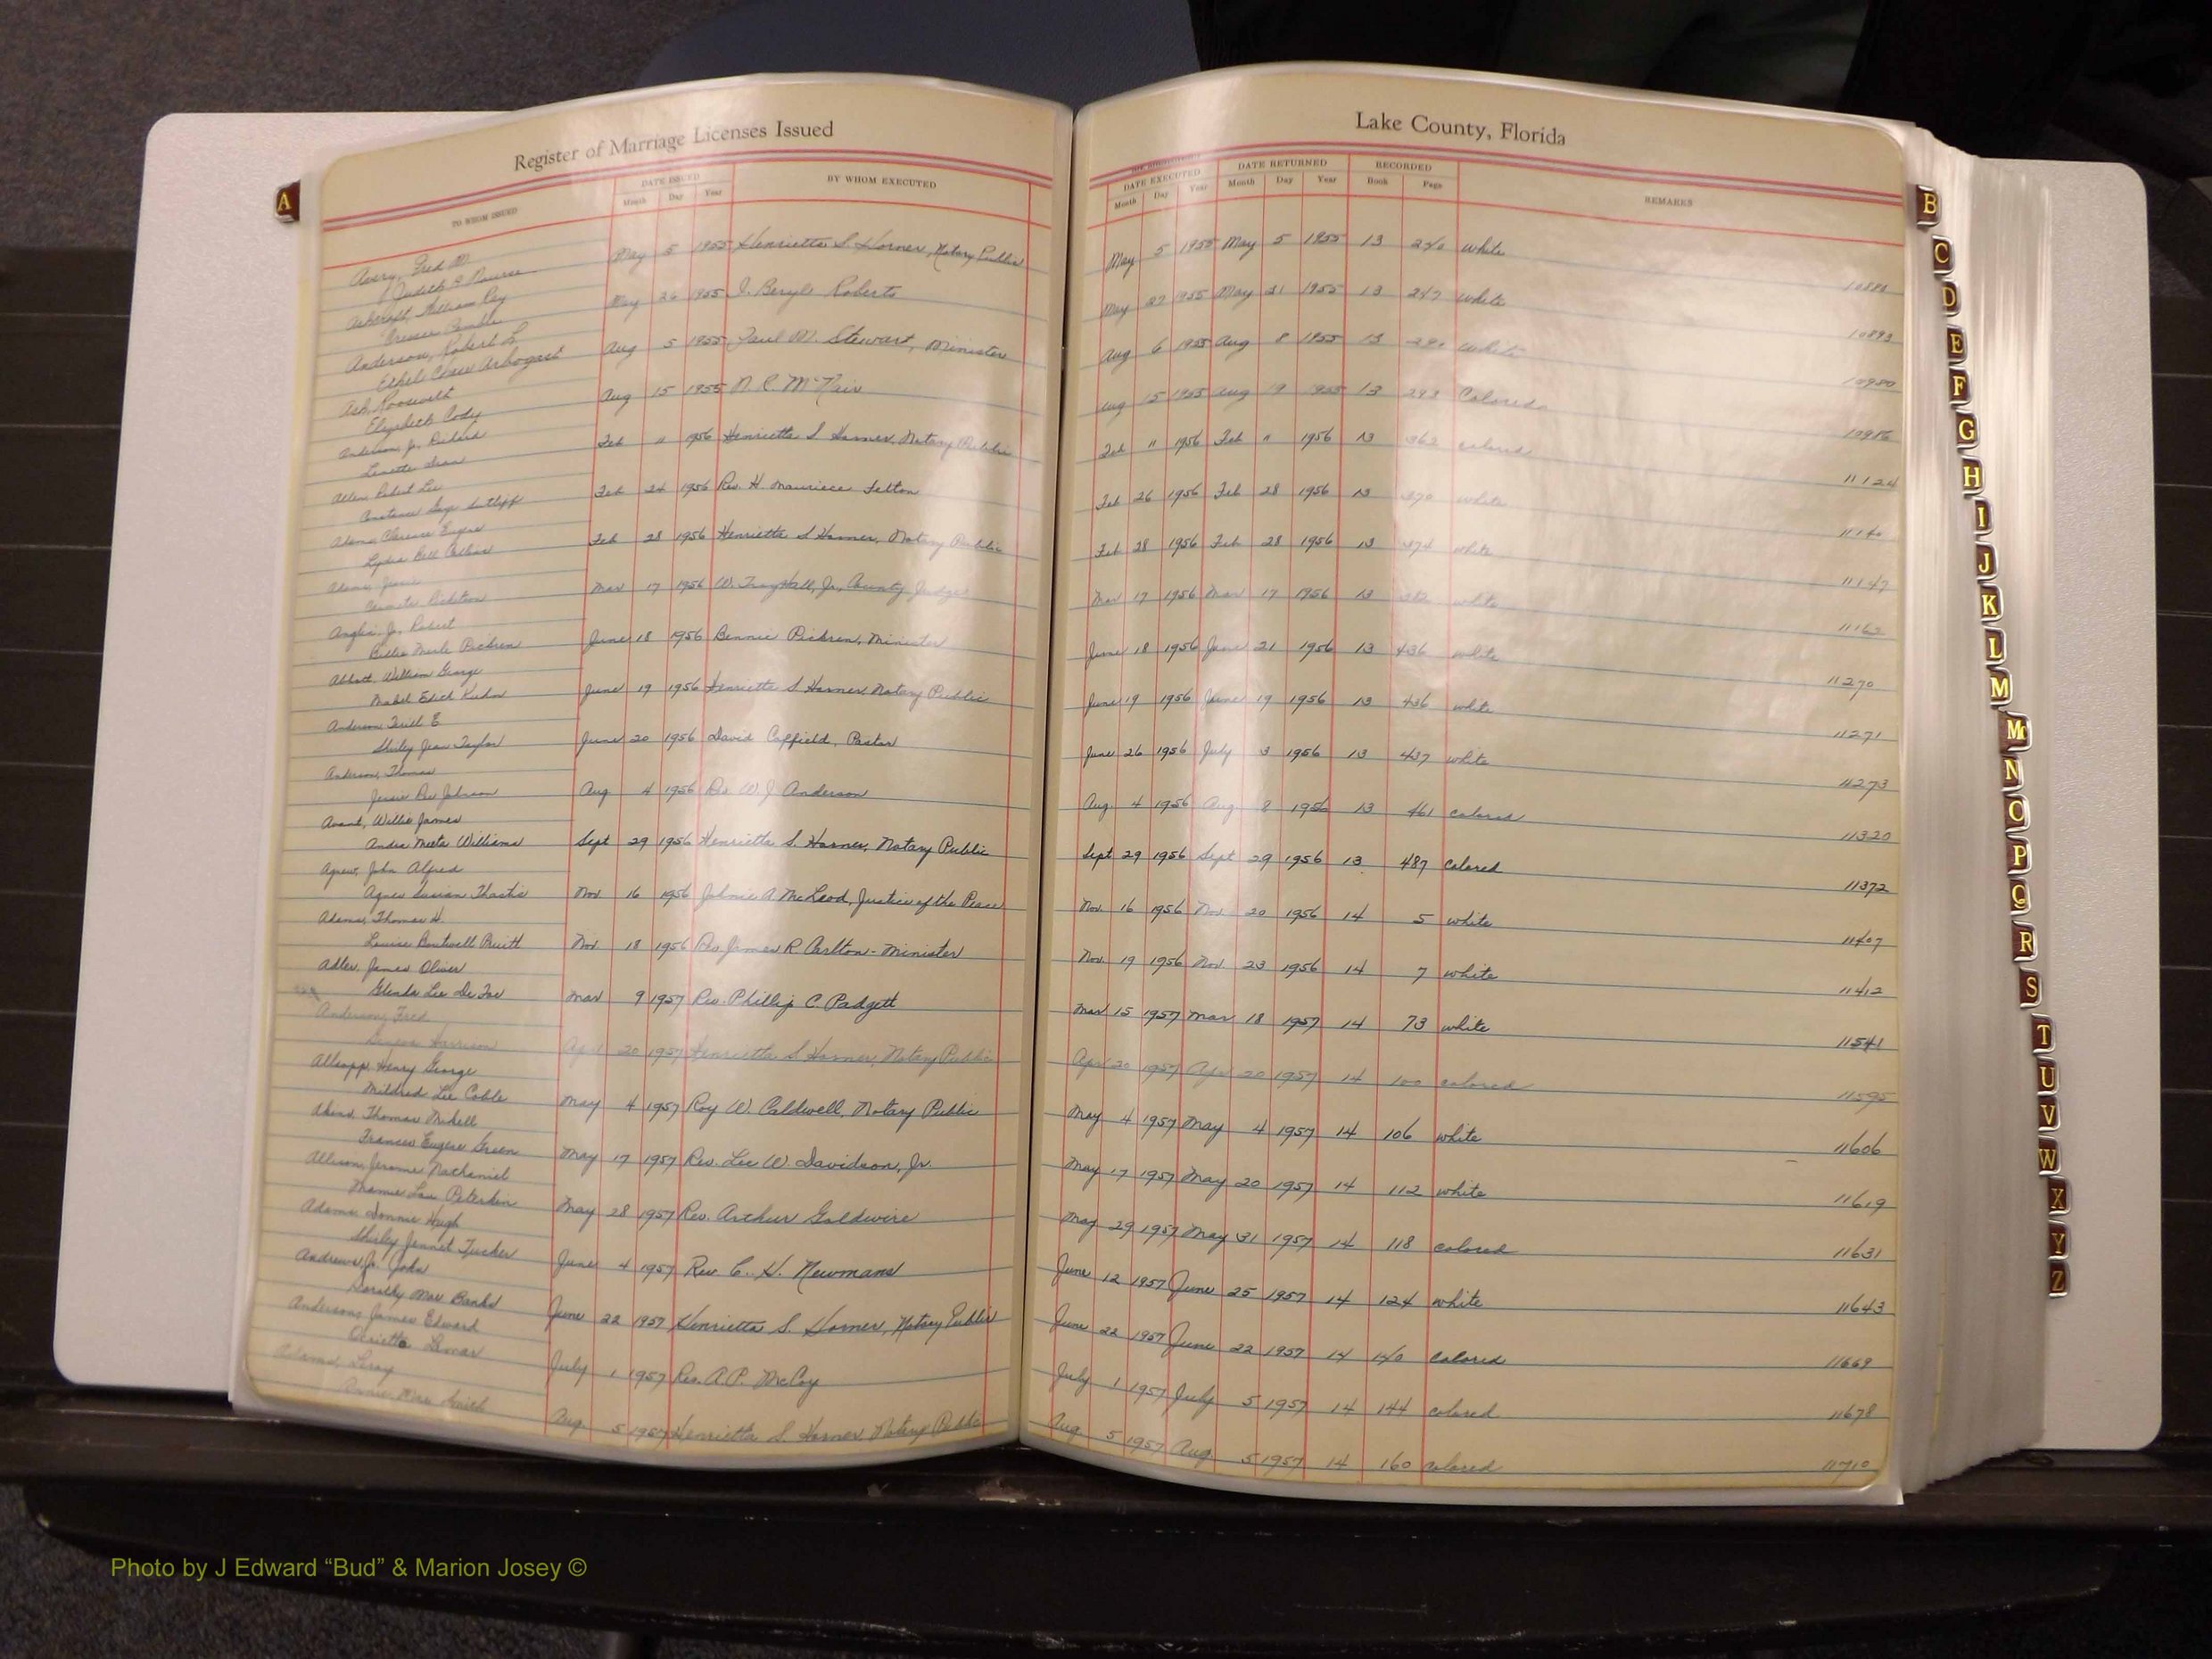 Register of Marriage Licenses Issued
Lake County, Florida
TO WHOM ISSUED
DATE ISSUED
Month Day Year
BY WHOM EXECUTED
DATE EXECUTED
Month Day Year
DATE RETURNED
Month Day Year
RECORDED
Book Page
REMARKS
A
Avery, Fred M.
Judith A
May 5 1955 Henrietta S. Horner, Notary Public May 5 1955 May 5 1955 13 240 White
Ashcraft, William Ray
May 26 1955 J. Beryl Roberts May 27 1955 May 31 1955 13 247 White 10893
Anderson, Robert L
Ethel Chase Arbogast
Aug 5 1955 Paul M. Stewart, Minister Aug 6 1955 Aug 8 1955 13 White 10980
Ash, Roosevelt
Elizabeth Cody
Aug 15 1955 N. C. McNair Aug 15 1955 Aug 19 1955 13 293 Colored 10986
Anderson, Jr. Richard
Feb 11 1956 Henrietta S Horner, Notary Public Feb 11 1956 Feb 11 1956 13 363 colored 11124
Allen, Robert Lee
Constance Gaye Sutliff
Feb 24 1956 Rev. H. Mauriece Felton Feb 26 1956 Feb 28 1956 13 370 white 11140
Adams, Clarence Eugene
Lydia Bell Collins
Feb 28 1956 Henrietta S Horner, Notary Public Feb 28 1956 Feb 28 1956 13 374 white 11147
Adams, Jessie
Mar 17 1956 W. Troy Hall, Jr., County Judge Mar 17 1956 Mar 17 1956 13 382 white 11163
Anglin, Jr. Robert
Billie Merle Pickren
June 18 1956 Bennie Pickren, Minister June 18 1956 June 21 1956 13 436 white 11270
Abbott, William George
Mabel Edith Kuhn
June 19 1956 Henrietta S Horner Notary Public June 19 1956 June 19 1956 13 436 white 11271
Anderson, Terill E
Shirley Jean Taylor
June 20 1956 David Coffield, Pastor June 26 1956 July 3 1956 13 437 white 11273
Anderson, Thomas
Jessie Dee Johnson
Aug 4 1956 Rev. W. J. Anderson Aug. 4 1956 Aug 8 1956 13 461 colored 11320
Avant, Willie James
Andra Meeta Williams
Sept 29 1956 Henrietta S. Horner, Notary Public Sept 29 1956 Sept 29 1956 13 487 colored 11372
Agnew, John Alfred
Agnes Susan
Nov 16 1956 Johnie A McLeod, Justice of the Peace Nov. 16 1956 Nov. 20 1956 14 5 white 11407
Adams, Thomas H.
Louise Boutwell Pruitt
Nov 18 1956 Rev James R Carlton - Minister Nov. 19 1956 Nov. 23 1956 14 7 white 11412
Adler, James Oliver
Glenda Lee De Foe
Mar 9 1957 Rev. Phillip C. Padgett Mar 15 1957 Mar 18 1957 14 73 white 11541
Anderson, Fred
Harrison
April 20 1957 Henrietta S Horner, Notary Public Apr 20 1957 Apr 20 1957 14 100 colored 11595
Allsopp, Henry George
Mildred Lee Coble
May 4 1957 Roy W. Caldwell, Notary Public May 4 1957 May 4 1957 14 106 white 11606
Akins, Thomas Mikell
Frances Eugene Green
May 17 1957 Rev. Lee W. Davidson, Jr. May 17 1957 May 20 1957 14 112 white 11619
Allison, Jerome Nathaniel
Mamie Lou Peterkin
May 28 1957 Rev. Arthur Goldwire May 29 1957 May 31 1957 14 118 colored 11631
Adams, Donnie Hugh
Shirley Jennet Tucker
June 4 1957 Rev. C. H. Newmans June 12 1957 June 25 1957 14 124 white 11643
Andrews, Jr. John
Dorothy Mae Banks
June 22 1957 Henrietta S. Horner, Notary Public June 22 1957 June 22 1957 14 140 colored 11669
Anderson, James Edward
Orietta Lemar
July 1 1957 Rev. A.P. McCoy July 1 1957 July 5 1957 14 144 colored 11678
Adams, Leroy
Annie Mae Smith
Aug. 5 1957 Henrietta S. Horner, Notary Public Aug 5 1957 Aug 5 1957 14 160 colored 11710
B
C
D
E
F
G
H
I
J
K
L
M
Mc
N
O
P
Q
R
S
T
U
V
W
X
Y
Z
Photo by J Edward “Bud” & Marion Josey ©